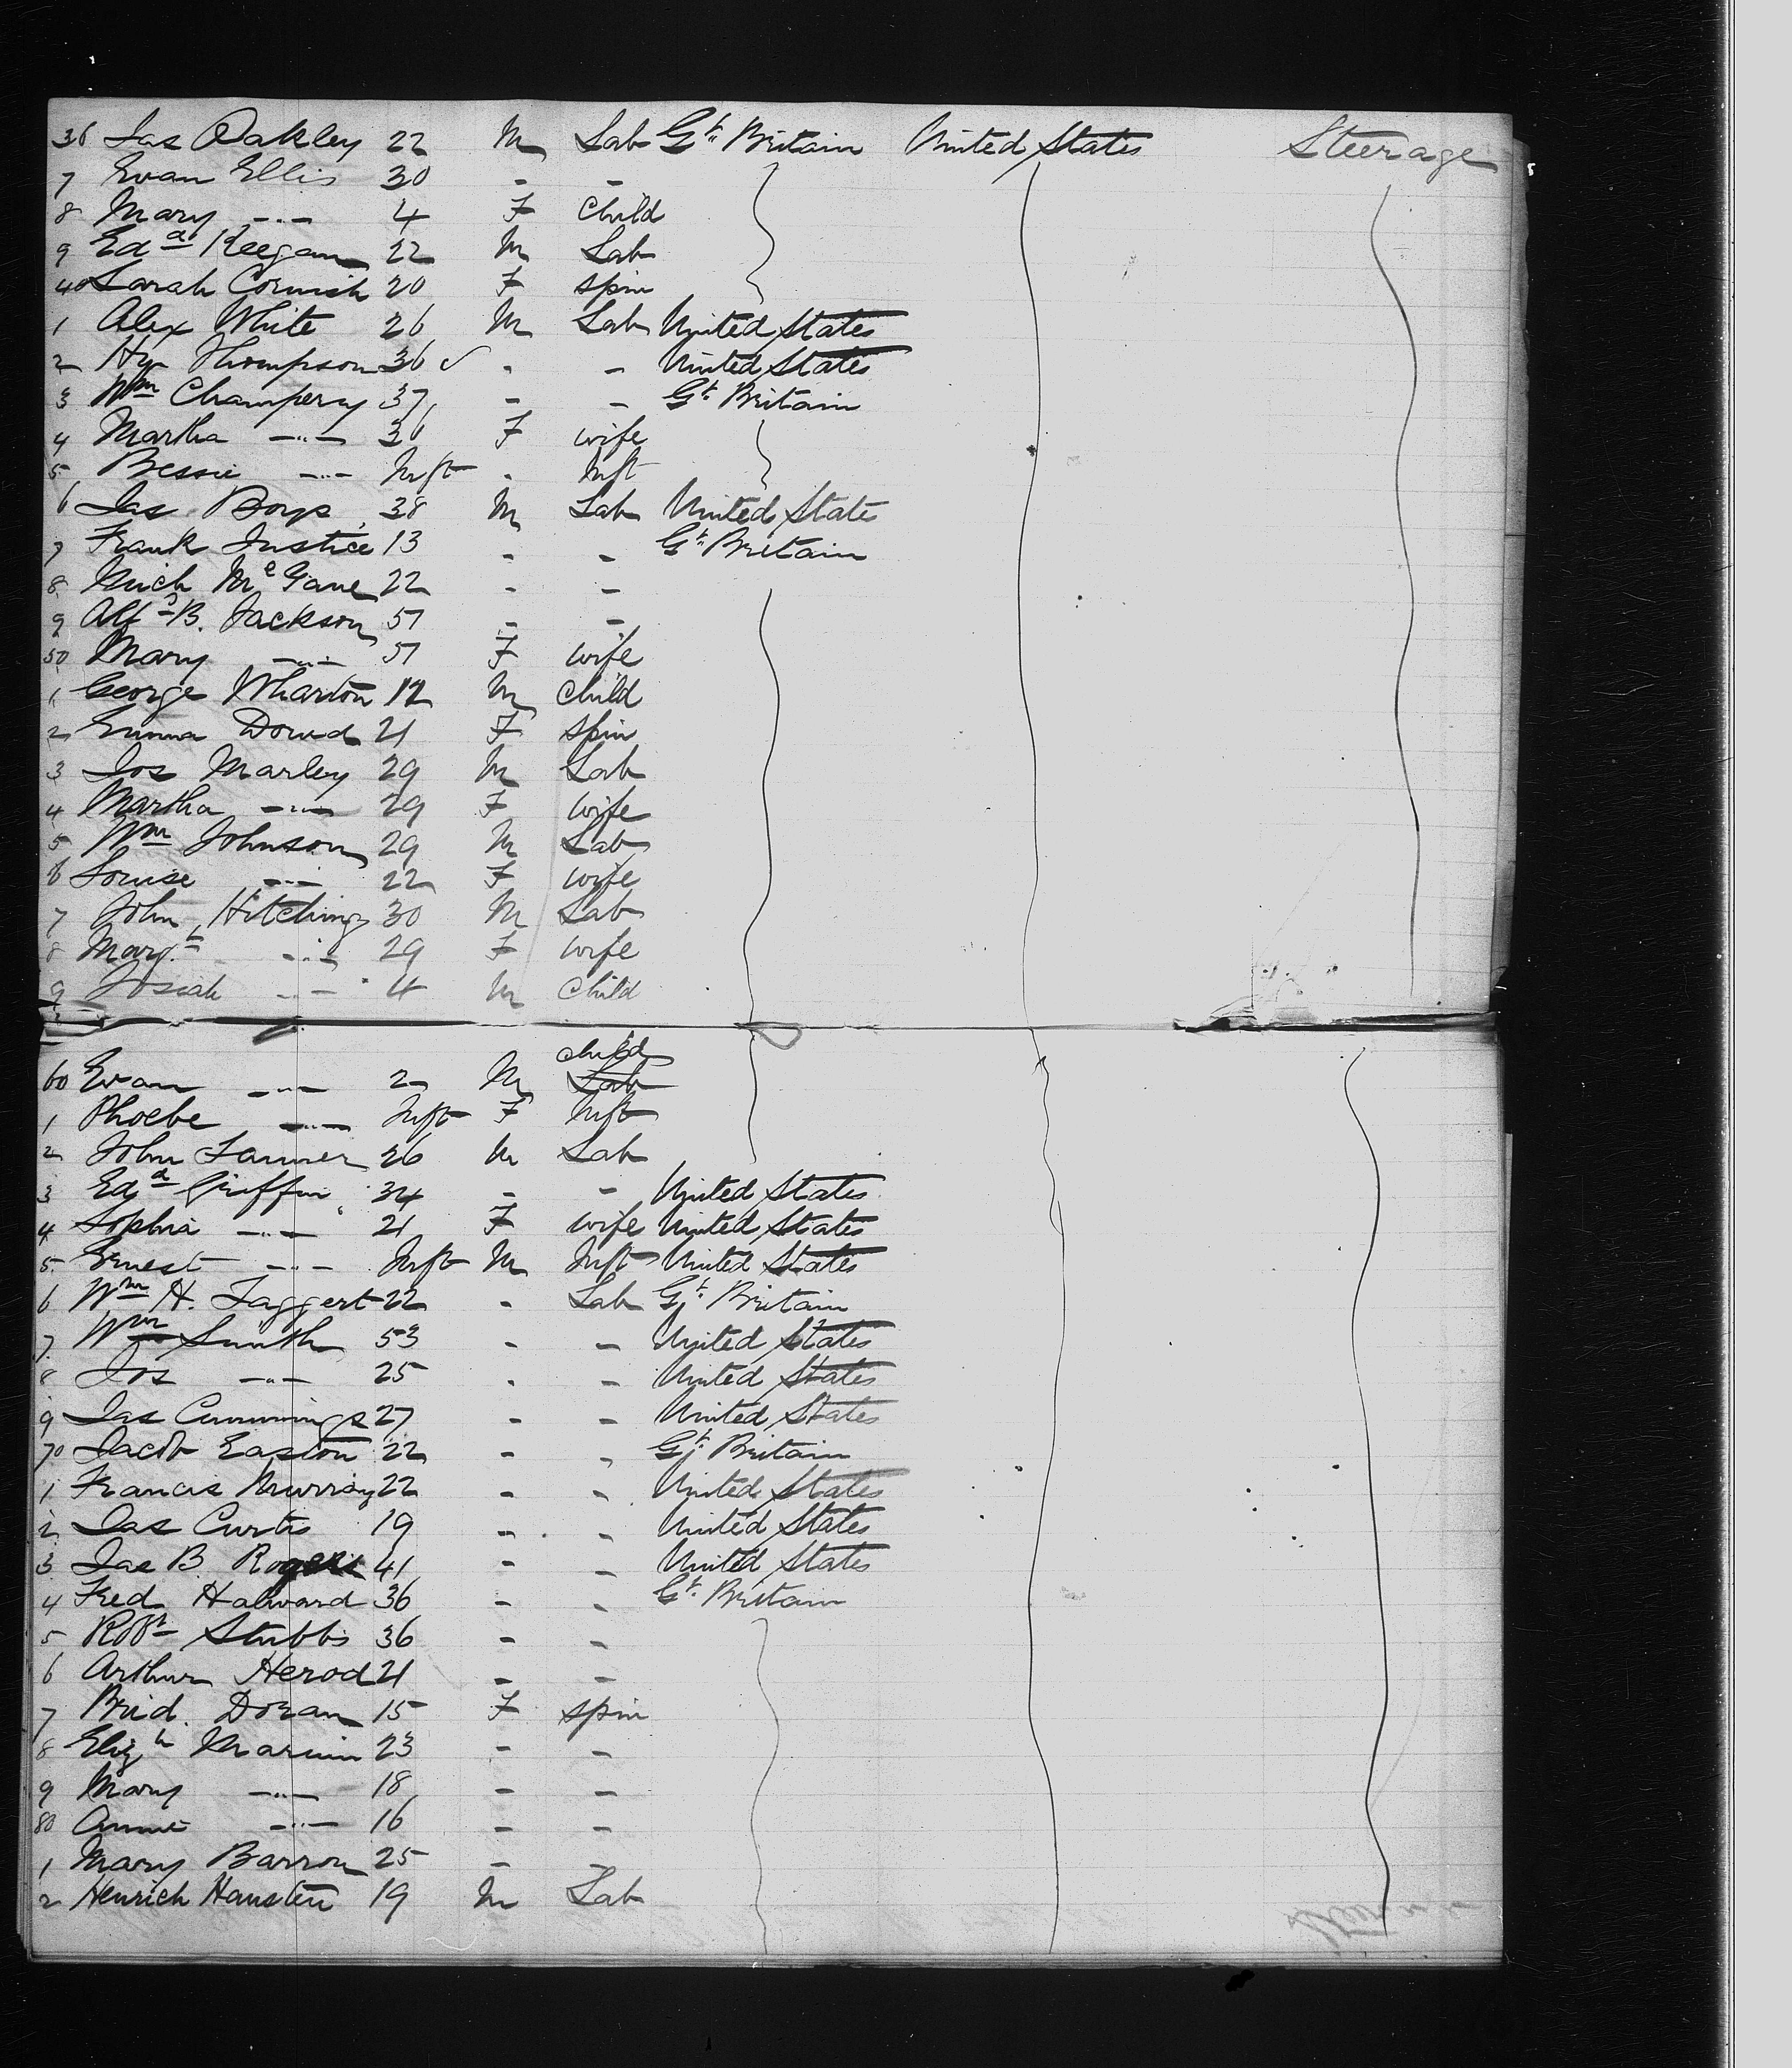 36 Jas Oakley 22 M Lab Gt Britain United States Steerage
7 Evan Ellis 30 - -
8 Mary -"- 4 F Child
9 Edd Keegan 22 M Lab
40 Sarah Cornish 20 F spin
1 Alex White 26 M Lab United States
2 Hy Thompson 36 ✓ - - United States
3 Wm Champery 37 - - Gt Britain
4 Martha -"- 36 F wife
5 Bessie -"- Inft - Inft
6 Jas Boys 38 M Lab United States
7 Frank Justice 13 - - Gt Britain
8 Mich McGane 22 - -
9 Alfd B. Jackson 51 - -
50 Mary -"- 51 F wife
1 George Wharton 12 M Child
2 Emma Dowd 21 F spin
3 Jos Marley 29 M Lab
4 Martha -"- 29 F wife
5 Wm Johnson 29 M Lab
6 Louise -"- 22 F wife
7 John Hitchings 30 M Lab
8 Margt -"- 29 F wife
9 Josiah -"- 4 M Child
child
60 Evan -"- 2 M Lab
1 Phoebe -"- Inft F Inft
2 John Lanner 26 M Lab
3 Edd Griffin 34 - - United States
4 Sophia -"- 21 F wife United States
5 Ernest -"- Inft M Inft United States
6 Wm H. Taggert 22 - Lab Gt Britain
7 Wm Smith 53 - - United States
8 Jos -"- 25 - - United States
9 Jas Cummings 27 - - United States
70 Jacob Easton 22 - - Gt Britain
1 Francis Murray 22 - - United States
2 Jas Curtis 19 - - United States
3 Jas B. Rogers 41 - - United States
4 Fred Halward 36 - - Gt Britain
5 Robt Stubbs 36 - -
6 Arthur Herod 21 - -
7 Brid. Doran 15 F spin
8 Elizh Marvin 23 - -
9 Mary -"- 18 - -
80 Annie -"- 16 - -
1 Mary Barron 25 - -
2 Henrich Hansten 19 M Lab